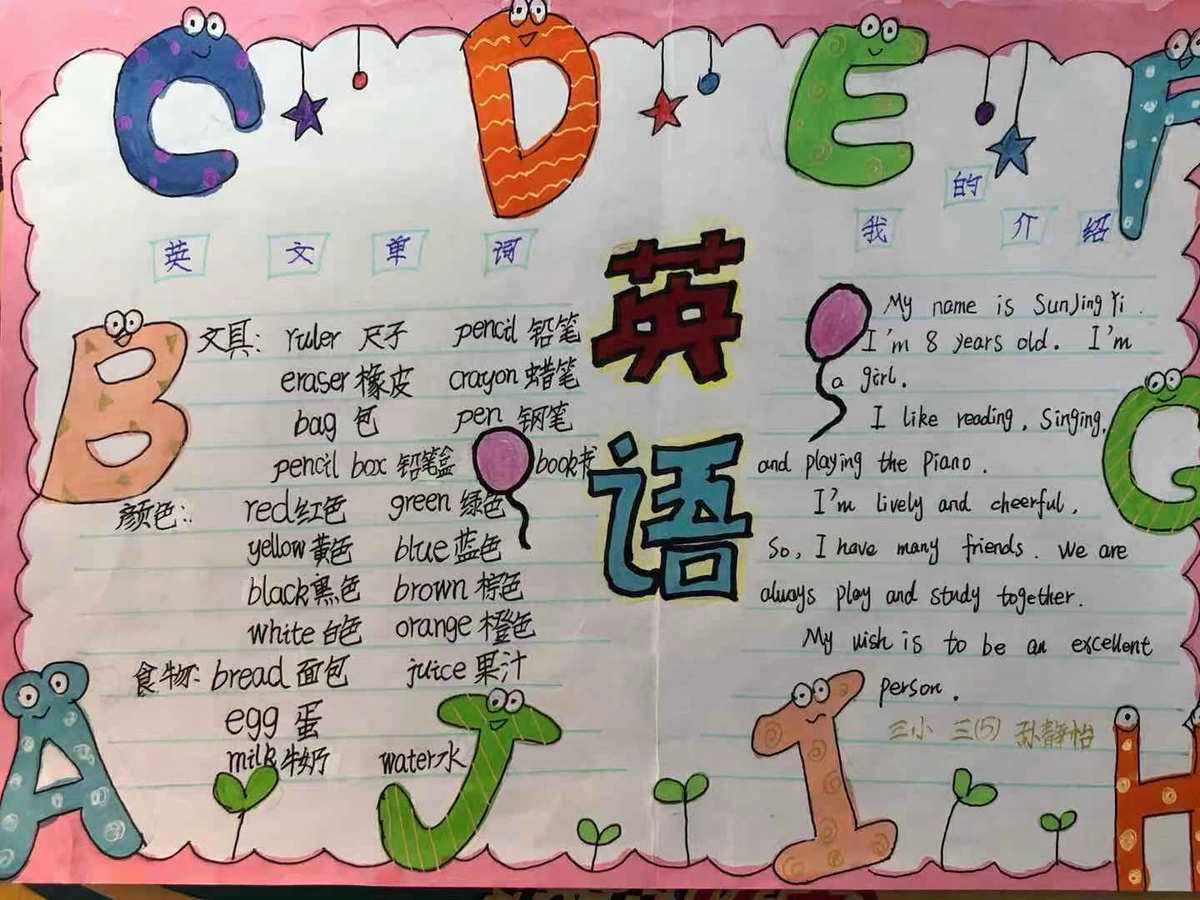 C D E F
英文单词
文具: ruler 尺子 pencil 铅笔
eraser 橡皮 crayon 蜡笔
bag 包 pen 钢笔
pencil box 铅笔盒 book 书
颜色: red 红色 green 绿色
yellow 黄色 blue 蓝色
black 黑色 brown 棕色
white 白色 orange 橙色
食物: bread 面包 juice 果汁
egg 蛋
milk 牛奶 water 水
英语
我的介绍
My name is SunJingYi.
I'm 8 years old. I'm
a girl.
I like reading, Singing,
and playing the Piano.
I'm lively and cheerful,
So, I have many friends. We are
always play and study together.
My wish is to be an excellent
person.
三小 三(5) 孙静怡
B
G
A J I H